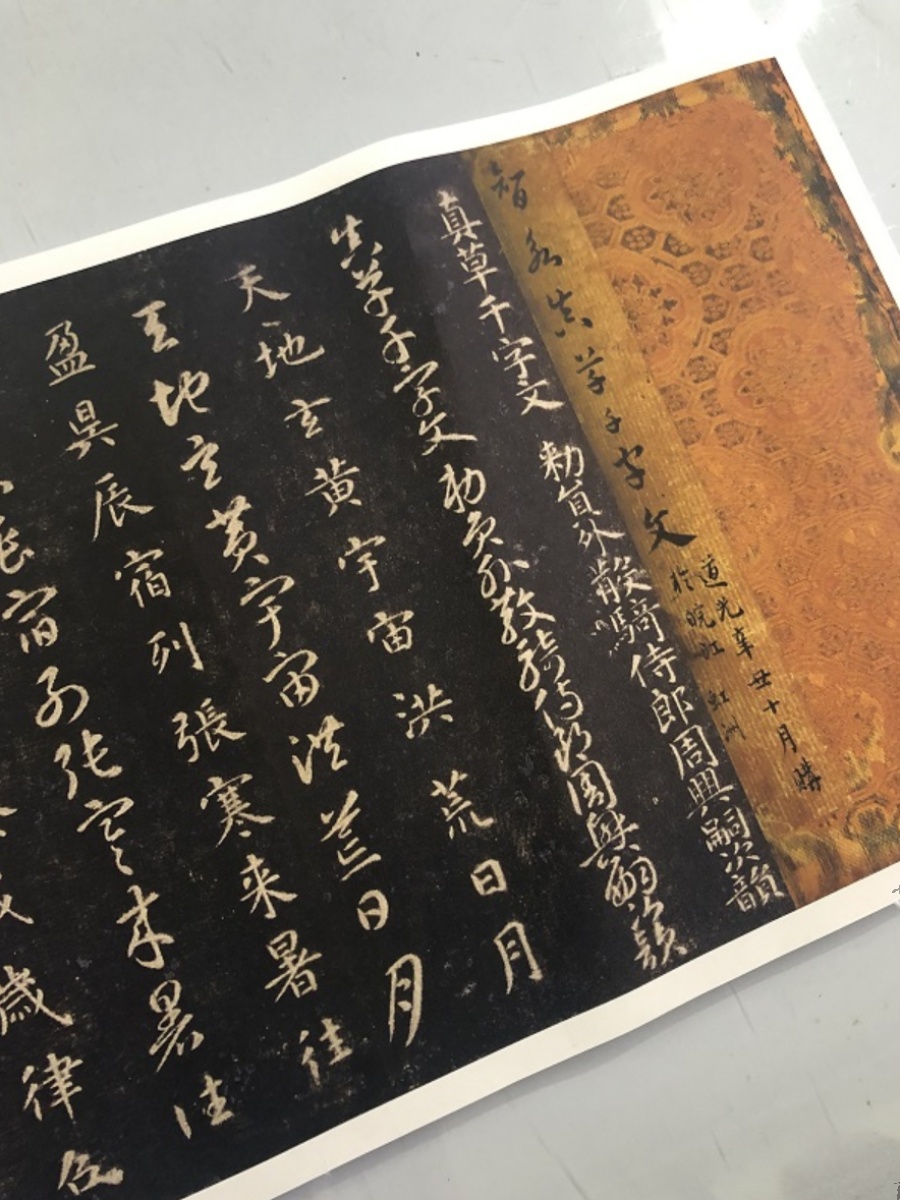 智永真草千字文
道光辛丑十月購
於皖江 虹洲
真草千字文 勅員外散騎侍郎周興嗣次韻
真草千字文勅員外散騎侍郎周興嗣次韻
天地玄黄宇宙洪荒日月
天地玄黄宇宙洪荒日月
盈昃辰宿列張寒来暑往
辰宿列張寒来暑往
歲律召